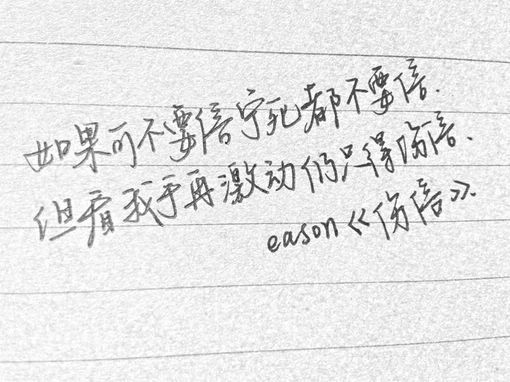 如果可不要信宁死都不要信.
但看我手再激动仍只得伤信.
eason《伤信》.